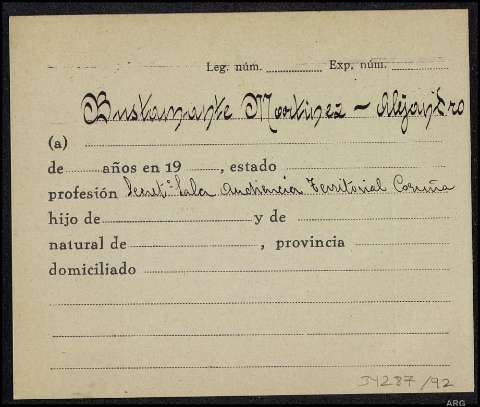 Leg. núm. Exp. núm.
Bustamante Martinez - Alejandro
(a)
de años en 19 , estado
profesión Secretº Sala Audiencia Territorial Coruña
hijo de y de
natural de , provincia
domiciliado
34287/92
ARG